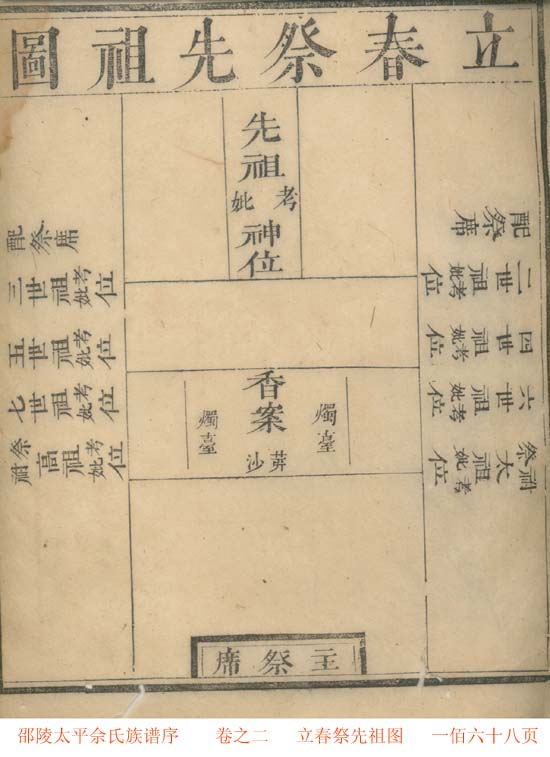 立春祭先祖圖
先祖考妣神位
配祭席
二世祖考妣位
四世祖考妣位
六世祖考妣位
祔祭太祖考妣位
配祭席
三世祖考妣位
五世祖考妣位
七世祖考妣位
祔祭高祖考妣位
燭臺
香案
沙
燭臺
主祭席
邵陵太平佘氏族谱序 卷之二 立春祭先祖图 一佰六十八页